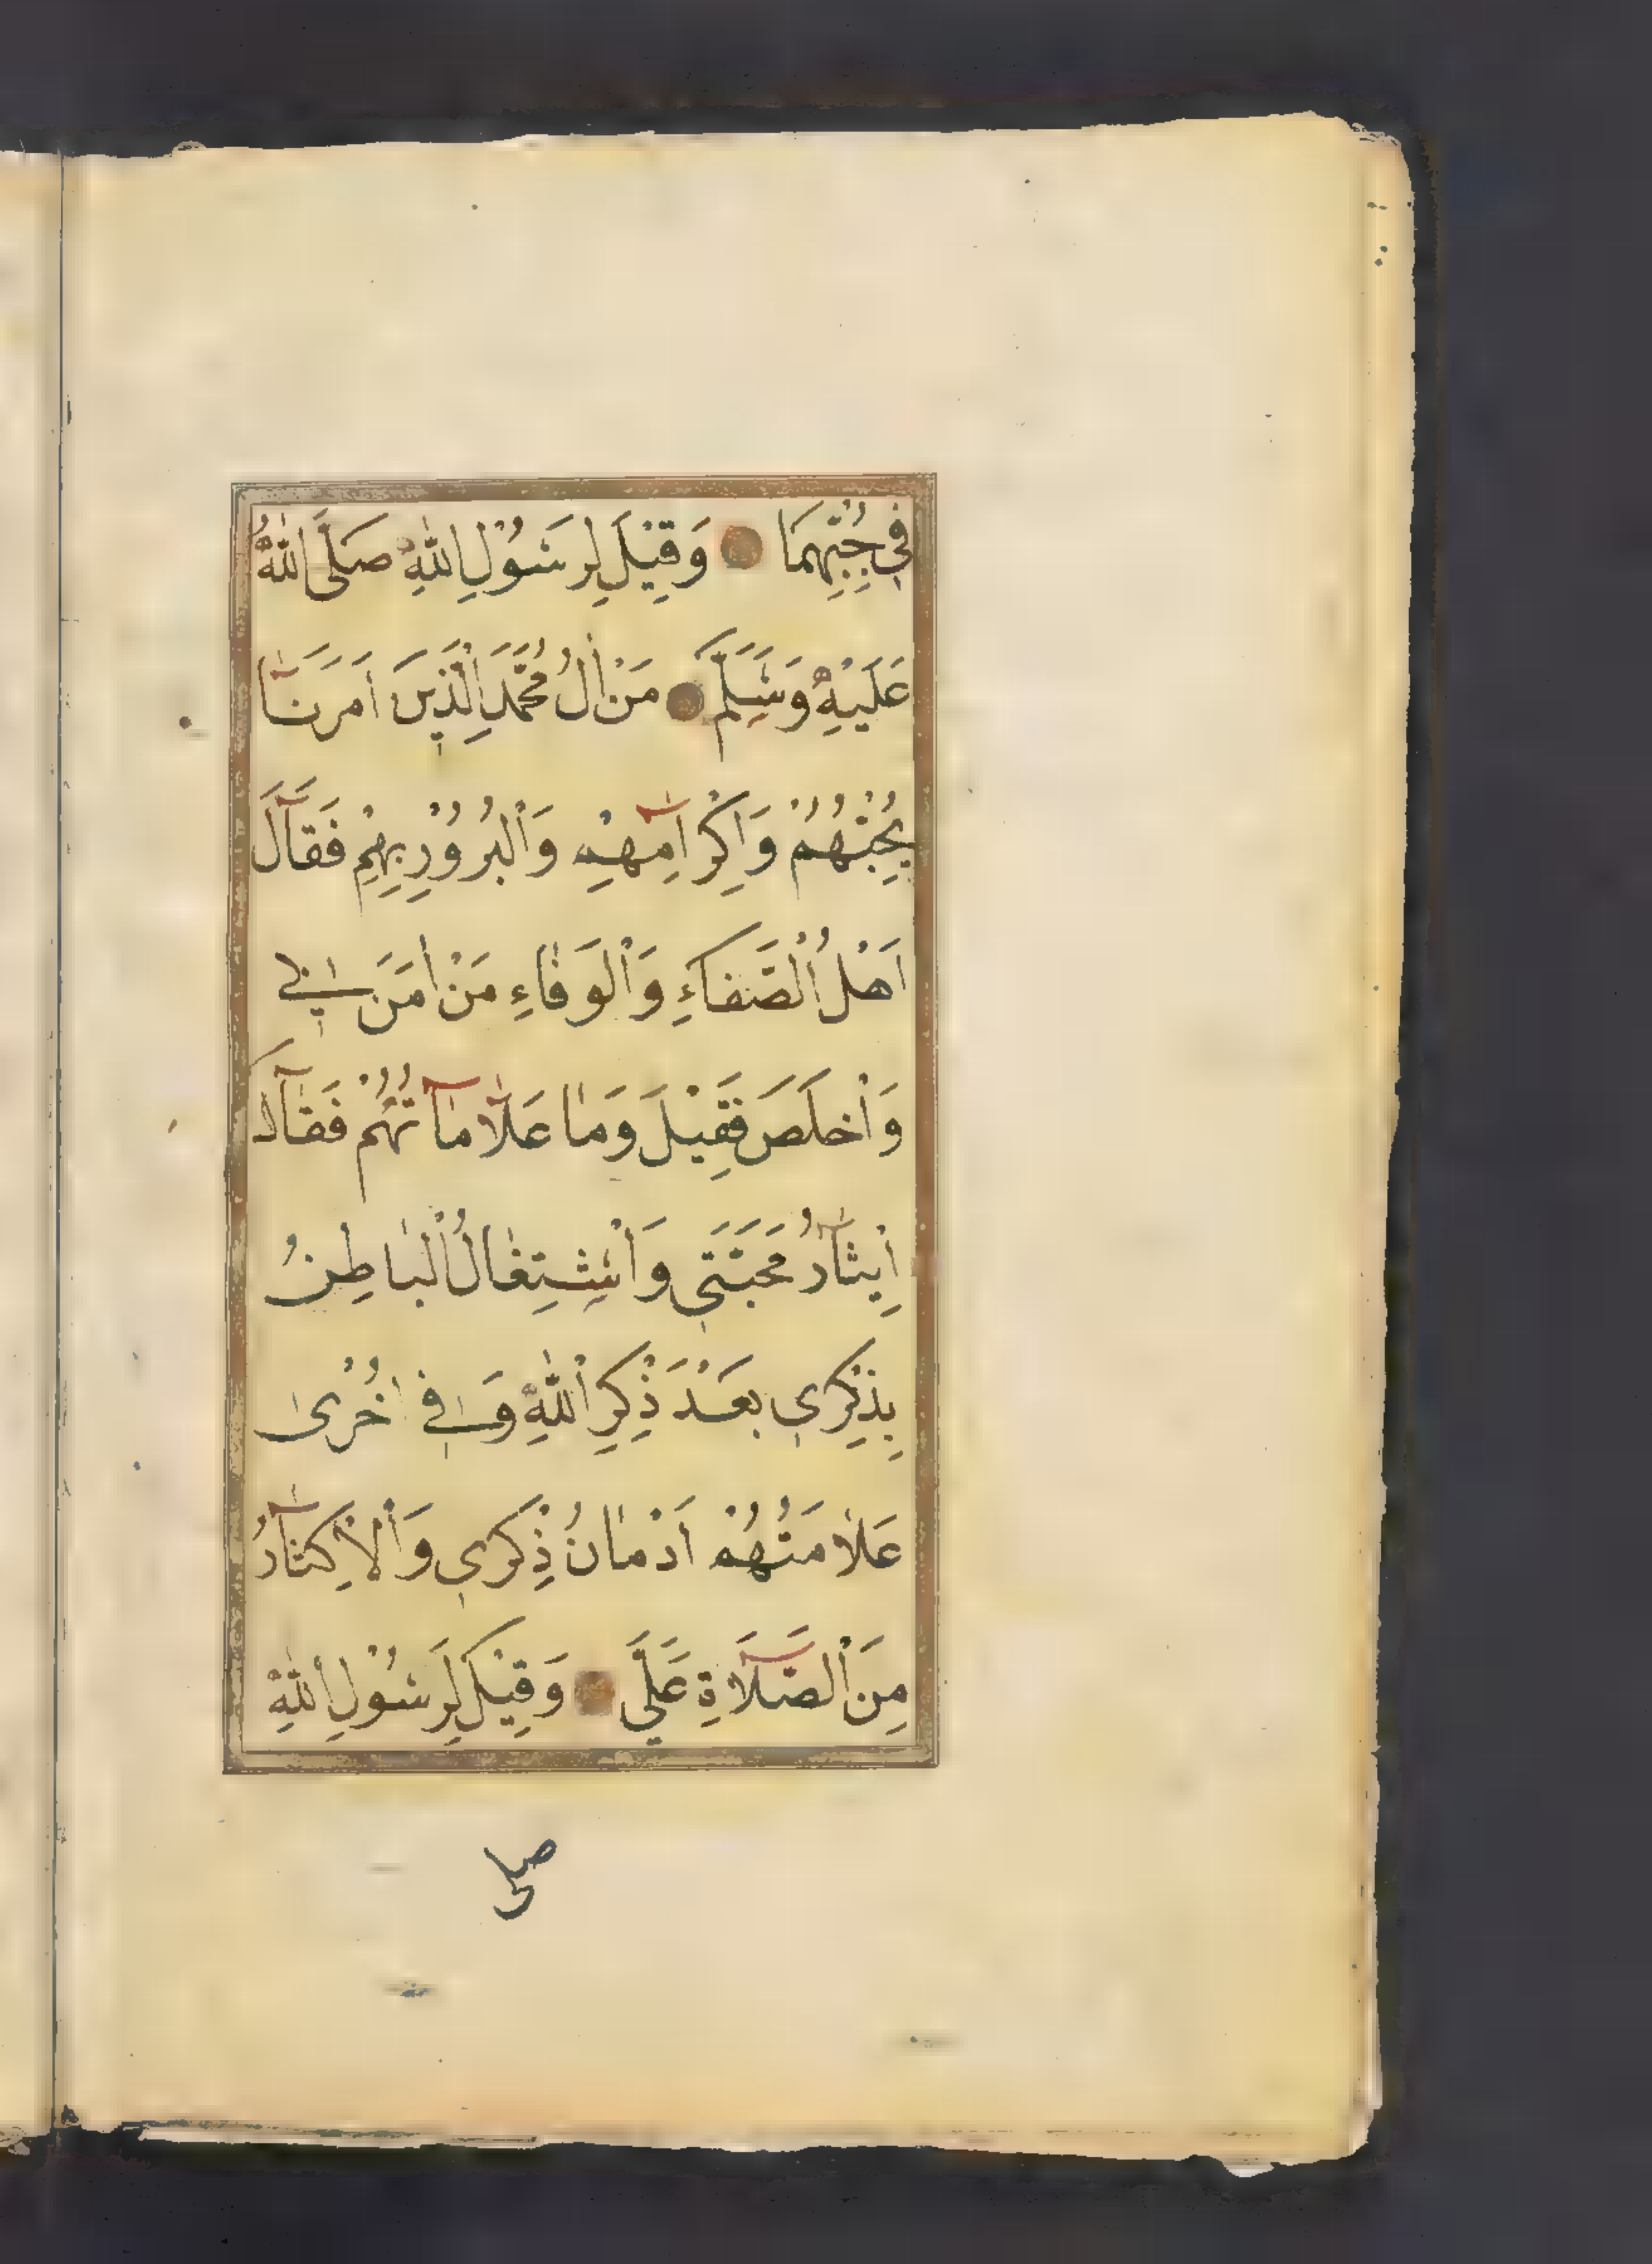 فِي حُبِّهِمَا وَقِيْلَ لِرَسُوْلِ اللّٰهِ صَلَّى اللّٰهُ
عَلَيْهِ وَسَلَّمَ مَنْ اٰلُ مُحَمَّدِ الَّذِيْنَ اَمَرَنَا
بِحُبِّهُمْ وَاِكْرَامِهِمْ وَالْبُرُوْرِ بِهِمْ فَقَالَ
اَهْلُ الصَّفَاءِ وَالْوَفَاءِ مَنْ اٰمَنَ بِي
وَاَخْلَصَ فَقِيْلَ وَمَا عَلَامَاتُهُمْ فَقَالَ
اِيْثَارُ مَحَبَّتِي وَاشْتِغَالُ الْبَاطِنِ
بِذِكْرِي بَعْدَ ذِكْرِ اللّٰهِ وَفِي اُخْرٰى
عَلَامَتُهُمْ اَدْمَانُ ذِكْرِي وَالْاِكْثَارُ
مِنَ الصَّلَاةِ عَلَيَّ وَقِيْلَ لِرَسُوْلِ اللّٰهِ
صلى